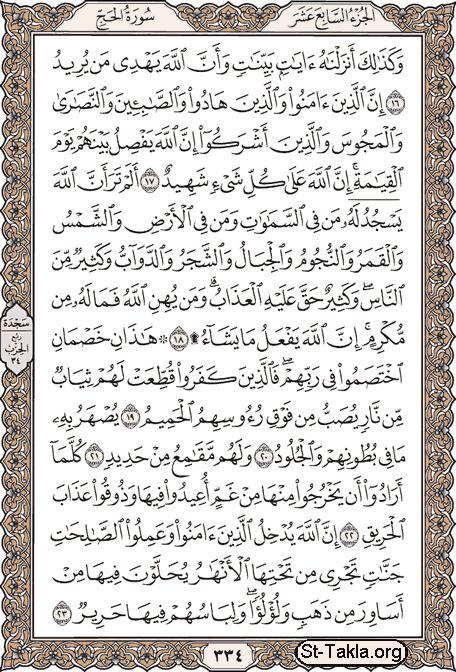 سُورَةُ الحَجِّ
الجُزءُ السَّابِعَ عَشَرَ
وَكَذَٰلِكَ أَنزَلْنَٰهُ ءَايَٰتٍۭ بَيِّنَٰتٍ وَأَنَّ ٱللَّهَ يَهْدِى مَن يُرِيدُ
١٦ إِنَّ ٱلَّذِينَ ءَامَنُوا۟ وَٱلَّذِينَ هَادُوا۟ وَٱلصَّٰبِـِٔينَ وَٱلنَّصَٰرَىٰ
وَٱلْمَجُوسَ وَٱلَّذِينَ أَشْرَكُوٓا۟ إِنَّ ٱللَّهَ يَفْصِلُ بَيْنَهُمْ يَوْمَ
ٱلْقِيَٰمَةِ ۚ إِنَّ ٱللَّهَ عَلَىٰ كُلِّ شَىْءٍ شَهِيدٌ ١٧ أَلَمْ تَرَ أَنَّ ٱللَّهَ
يَسْجُدُ لَهُۥ مَن فِى ٱلسَّمَٰوَٰتِ وَمَن فِى ٱلْأَرْضِ وَٱلشَّمْسُ
وَٱلْقَمَرُ وَٱلنُّجُومُ وَٱلْجِبَالُ وَٱلشَّجَرُ وَٱلدَّوَآبُّ وَكَثِيرٌ مِّنَ
ٱلنَّاسِ ۖ وَكَثِيرٌ حَقَّ عَلَيْهِ ٱلْعَذَابُ ۗ وَمَن يُهِنِ ٱللَّهُ فَمَا لَهُۥ مِن
مُّكْرِمٍ ۚ إِنَّ ٱللَّهَ يَفْعَلُ مَا يَشَآءُ ۩ ١٨ ۞ هَٰذَانِ خَصْمَانِ
ٱخْتَصَمُوا۟ فِى رَبِّهِمْ ۖ فَٱلَّذِينَ كَفَرُوا۟ قُطِّعَتْ لَهُمْ ثِيَابٌ
مِّن نَّارٍ يُصَبُّ مِن فَوْقِ رُءُوسِهِمُ ٱلْحَمِيمُ ١٩ يُصْهَرُ بِهِۦ
مَا فِى بُطُونِهِمْ وَٱلْجُلُودُ ٢٠ وَلَهُم مَّقَٰمِعُ مِنْ حَدِيدٍ ٢١ كُلَّمَآ
أَرَادُوٓا۟ أَن يَخْرُجُوا۟ مِنْهَا مِنْ غَمٍّ أُعِيدُوا۟ فِيهَا وَذُوقُوا۟ عَذَابَ
ٱلْحَرِيقِ ٢٢ إِنَّ ٱللَّهَ يُدْخِلُ ٱلَّذِينَ ءَامَنُوا۟ وَعَمِلُوا۟ ٱلصَّٰلِحَٰتِ
جَنَّٰتٍ تَجْرِى مِن تَحْتِهَا ٱلْأَنْهَٰرُ يُحَلَّوْنَ فِيهَا مِنْ
أَسَاوِرَ مِن ذَهَبٍ وَلُؤْلُؤًا ۖ وَلِبَاسُهُمْ فِيهَا حَرِيرٌ ٢٣
سَجْدَة
رُبع
الحِزب
٣٤
٣٣٤
St-Takla.org